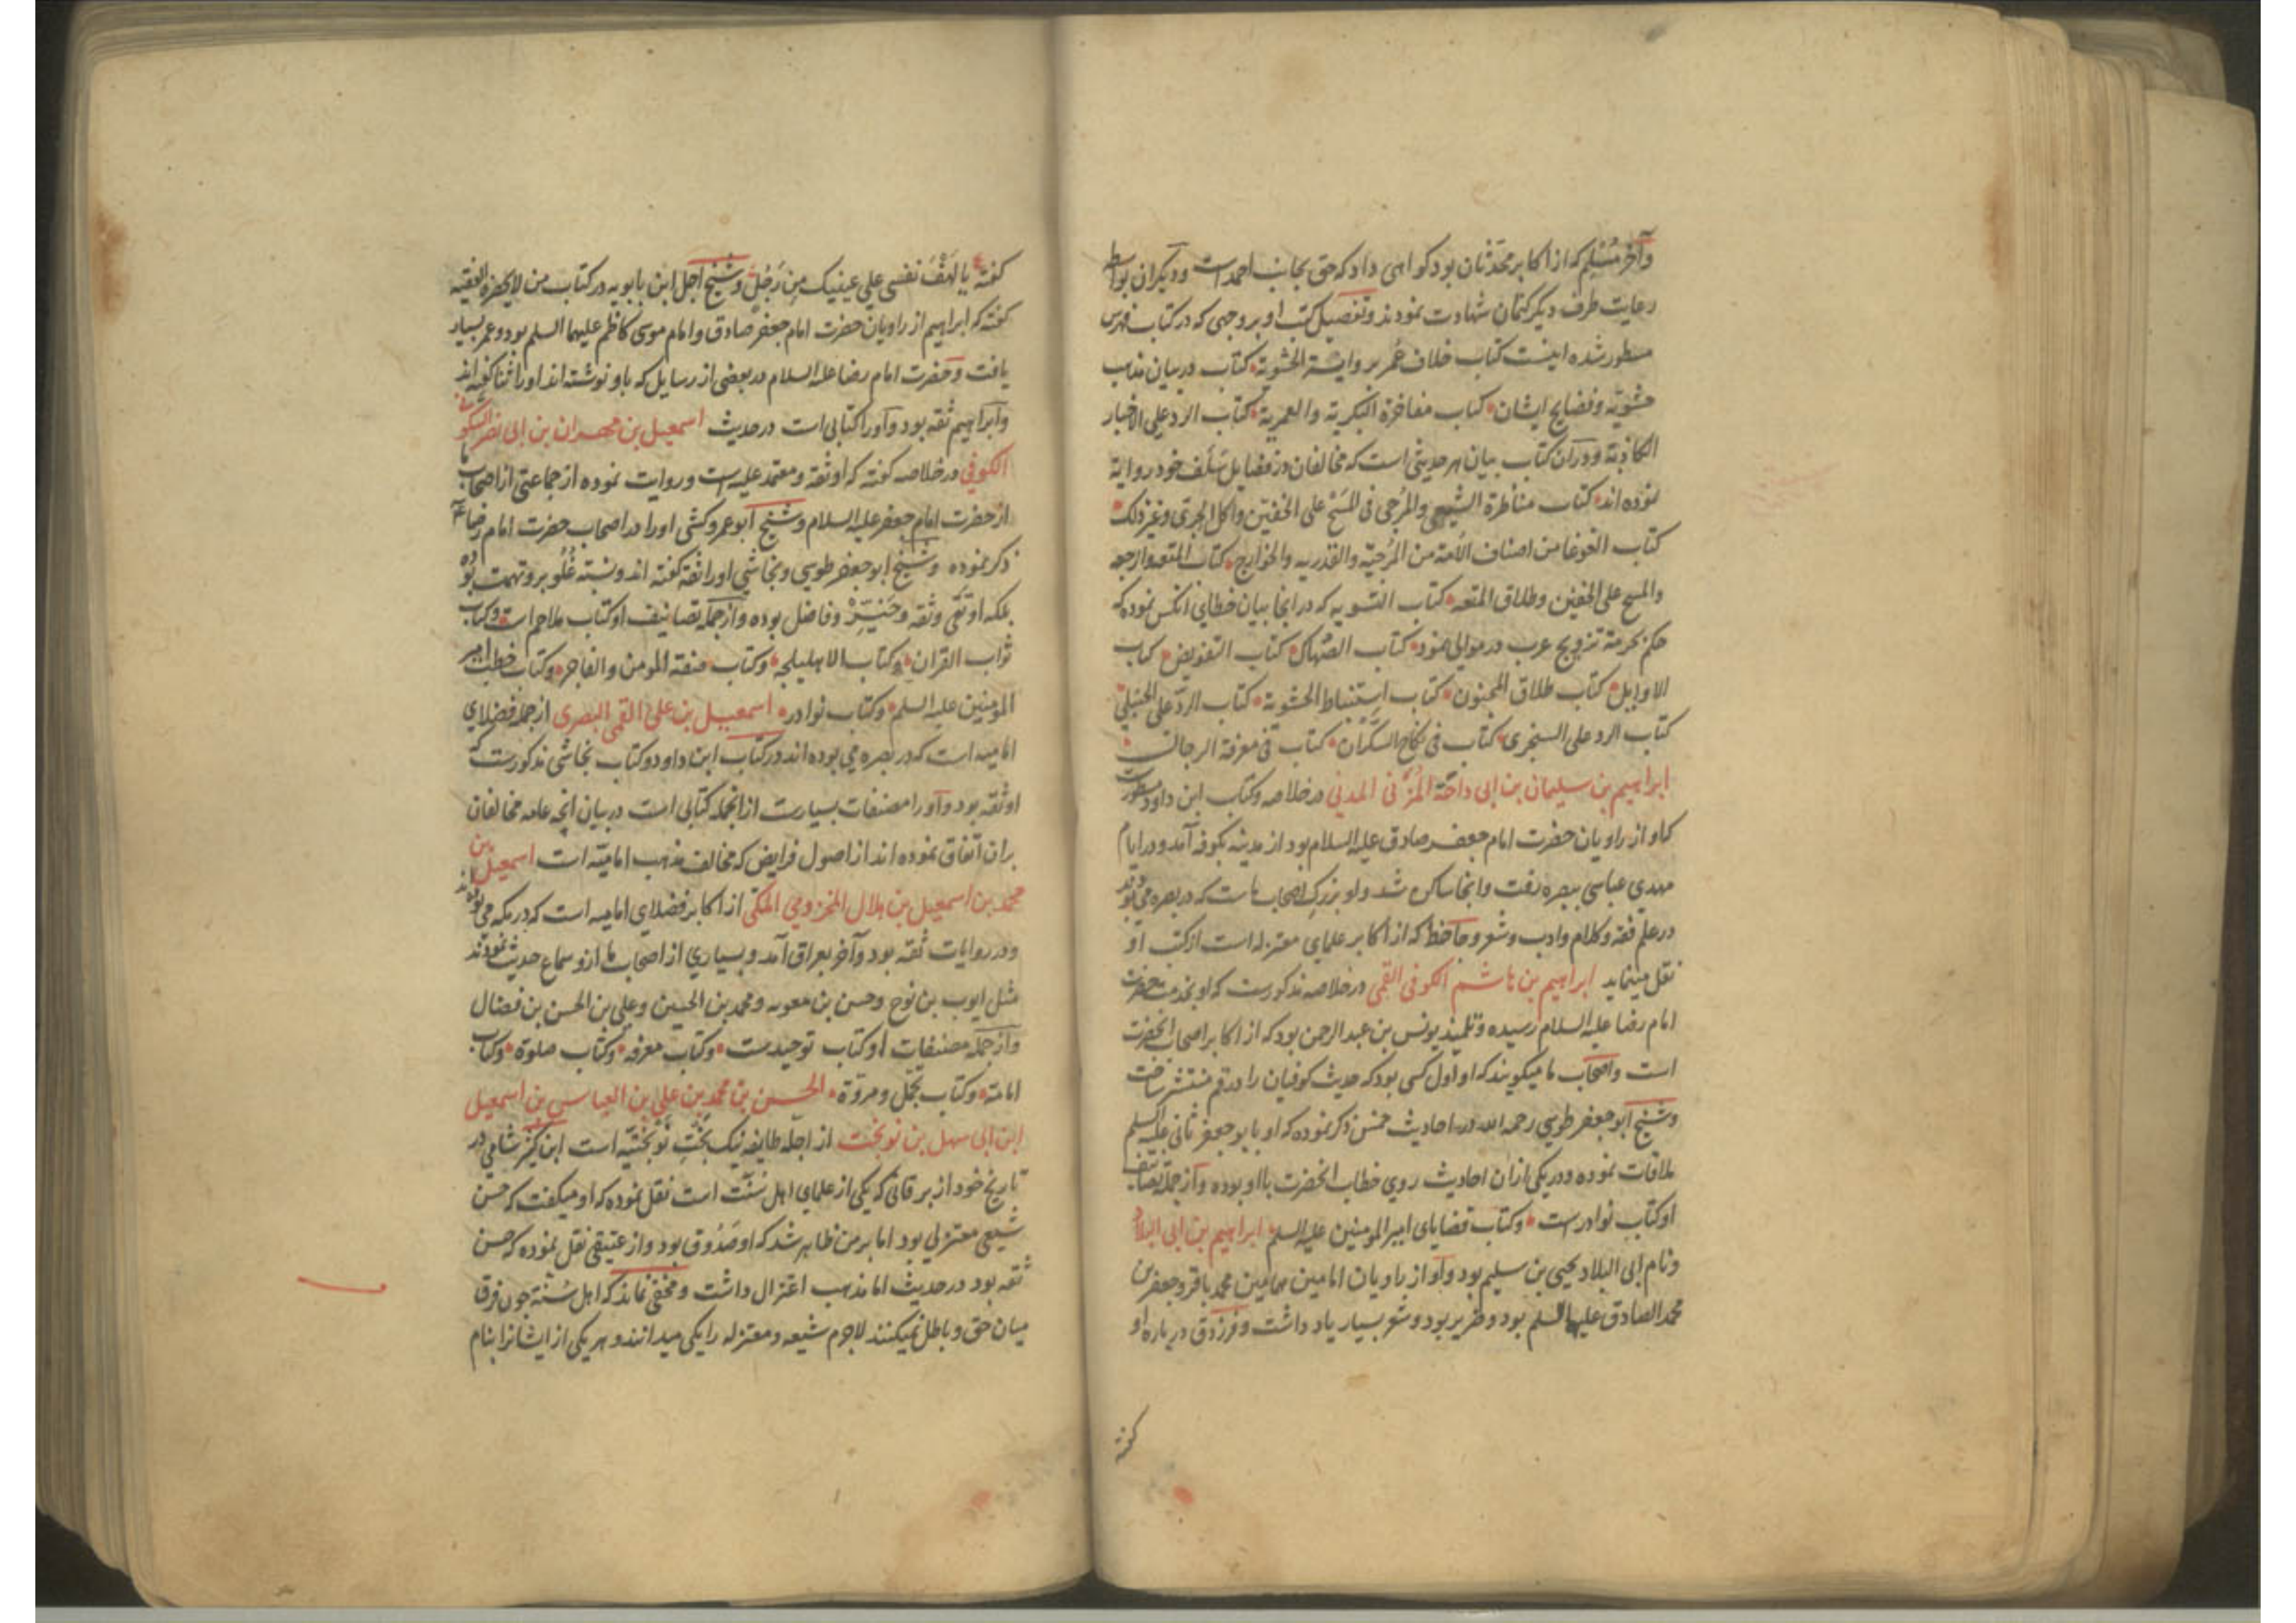 وآخر مُسْلِم که از اکابر محدثان بود کواهی داد که حق بجانب احمد است ودیکران بواسطه
رعایت طرف دیکر کتمان شهادت نمودند وتفصیل کتب او بر وجهی که در کتاب فهرس
مسطور شده اینست کتاب خلاف عُمر بروایة الحشویة کتاب در بیان مذاهب
حشویة وفضایح ایشان کتاب مفاخرة البکریة والعمریة کتاب الرد علی الاخبار
الکاذبة ودر آن کتاب بیان هر حدیثی است که مخالفان در فضایل سَلَف خود روایة
نموده اند کتاب مناظرة الشیعی والمرجی فی المَسْح علی الخفین واکل الجری وغیر ذلک
کتاب الغوغا من اصناف الاُمة من المُرجیّه والقدریه والخوارج کتاب المتعه والرجعه
والمسح علی الخفین وطلاق المتعه کتاب التسویه که در انجا بیان خطای انکس نموده که
حکم بحرمة تزویج عرب در موالی نموده کتاب الصُهاک کتاب التفویض کتاب
الاوایل کتاب طلاق المجنون کتاب اِستنباط الحشویة کتاب الردّ علی الحنبلی
کتاب الرد علی السنجری کتاب فی نکاح السکران کتاب فی معرفة الرجال
ابراهیم بن سلیمان بن ابی داحَة المُزَنی المدنی در خلاصه وکتاب ابن داود مسطورست
که او از راویان حضرت امام جعفر صادق علیه السلام بود از مدینه بکوفه آمد ودر ایام
مهدی عباسی ببصره رفت وانجا ساکن شد واو بزرک اصحاب ماست که در بصره می بودند
در علم فقه وکلام وادب وشعر وجاحظ که از اکابر علمای معتزله است از کتب او
نقل مینماید ابراهیم بن هاشم الکوفی القمی در خلاصه مذکورست که او بخدمت حضرت
امام رضا علیه السلام رسیده وتلمیذ یونس بن عبد الرحمن بود که از اکابر اصحاب انحضرت
است واصحاب ما میکویند که او اول کسی بود که حدیث کوفیان را در قم منتشر ساخت
وشیخ ابو جعفر طوسی رحمه الله در احادیث خمس ذکر نموده که او با ابو جعفر ثانی علیه السلم
ملاقات نموده ودر یکی ازان احادیث روی خطاب انحضرت با او بوده واز جمله تصانیف
او کتاب نوادرست وکتاب قضایای امیر المومنین علیه السلم ابراهیم بن ابی البلاد
ونام ابی البلاد یحیی بن سلیم بود واو از راویان امامین همامین محمد باقر وجعفر بن
محمد الصادق علیهما السلم بود وضریر بود وشعر بسیار یاد داشت وفرزدق در باره او
کفته
کفته یا لَهْفَ نفسی علی عینیک مِن رَجُلٍ وشیخ اجل ابن بابویه در کتاب من لایحضره الفقیه
کفته که ابراهیم از راویان حضرت امام جعفر صادق وامام موسی کاظم علیهما السلم بود وعمر بسیار
یافت وحضرت امام رضا علیه السلام در بعضی از رسایل که باو نوشته اند او را ثنا کفته اند
وابراهیم ثقه بود واو را کتابی است در حدیث اسمعیل بن مهران بن ابی نصر السکونی
الکوفی در خلاصه کفته که او ثقة ومعتمد علیه است وروایت نموده از جماعتی از اصحاب ما
از حضرت امام جعفر علیه السلام وشیخ ابو عمرو کشی او را در اصحاب حضرت امام رضا ع
ذکر نموده وشیخ ابو جعفر طوسی ونجاشی او را ثقة کفته اند ونسبة غُلُو برو تهمت بوده
بلکه او تقی وثقه وخَیّر وفاضل بوده واز جمله تصانیف او کتاب ملاحم است وکتاب
ثواب القران وکتاب الاهلیلجه وکتاب صفة المومن والفاجر وکتاب خطب امیر
المومنین علیه السلم وکتاب نوادر اسمعیل بن علی القمی البصری از جمله فضلای
امامیه است که در بصره می بوده اند در کتاب ابن داود وکتاب نجاشی مذکورست که
او ثقه بود واو را مصنفات بسیارست از انجمله کتابی است در بیان انچه عامه مخالفان
بران اتفاق نموده اند از اصول فرایض که مخالف مذهب امامیّه است اسمعیل بن
محمد بن اسمعیل بن هلال المخزومی المکی از اکابر فضلای امامیه است که در مکه می بودند
ودر روایات ثقه بود وآخر بعراق آمد وبسیاری از اصحاب ما ازو سماع حدیث نمودند
مثل ایوب بن نوح وحسن بن معویه ومحمد بن الحسین وعلی بن الحسن بن فضال
واز جمله مصنفات او کتاب توحیدست وکتاب معرفه وکتاب صلوة وکتاب
امامة وکتاب تجمّل ومروّة الحسن بن محمد بن علی بن العباس بن اسمعیل
ابن ابی سهل بن نوبخت از اجلّه طایفه نیک بَخْتِ نوبختیّه است ابن کثیر شامی در
تاریخ خود از برقانی که یکی از علمای اهل سُنّت است نقل نموده که او میکفت که حسن
شیعی معتزلی بود اما بر من ظاهر شد که او صَدُوق بود واز عتیقی نقل نموده که حسن
ثقه بود در حدیث اما مذهب اعتزال داشت ومخفی نماند که اهل سُنّة چون فرق
میان حق وباطل نمیکنند لاجرم شیعه ومعتزله را یکی میدانند وهر یکی از ایشانرا بنام